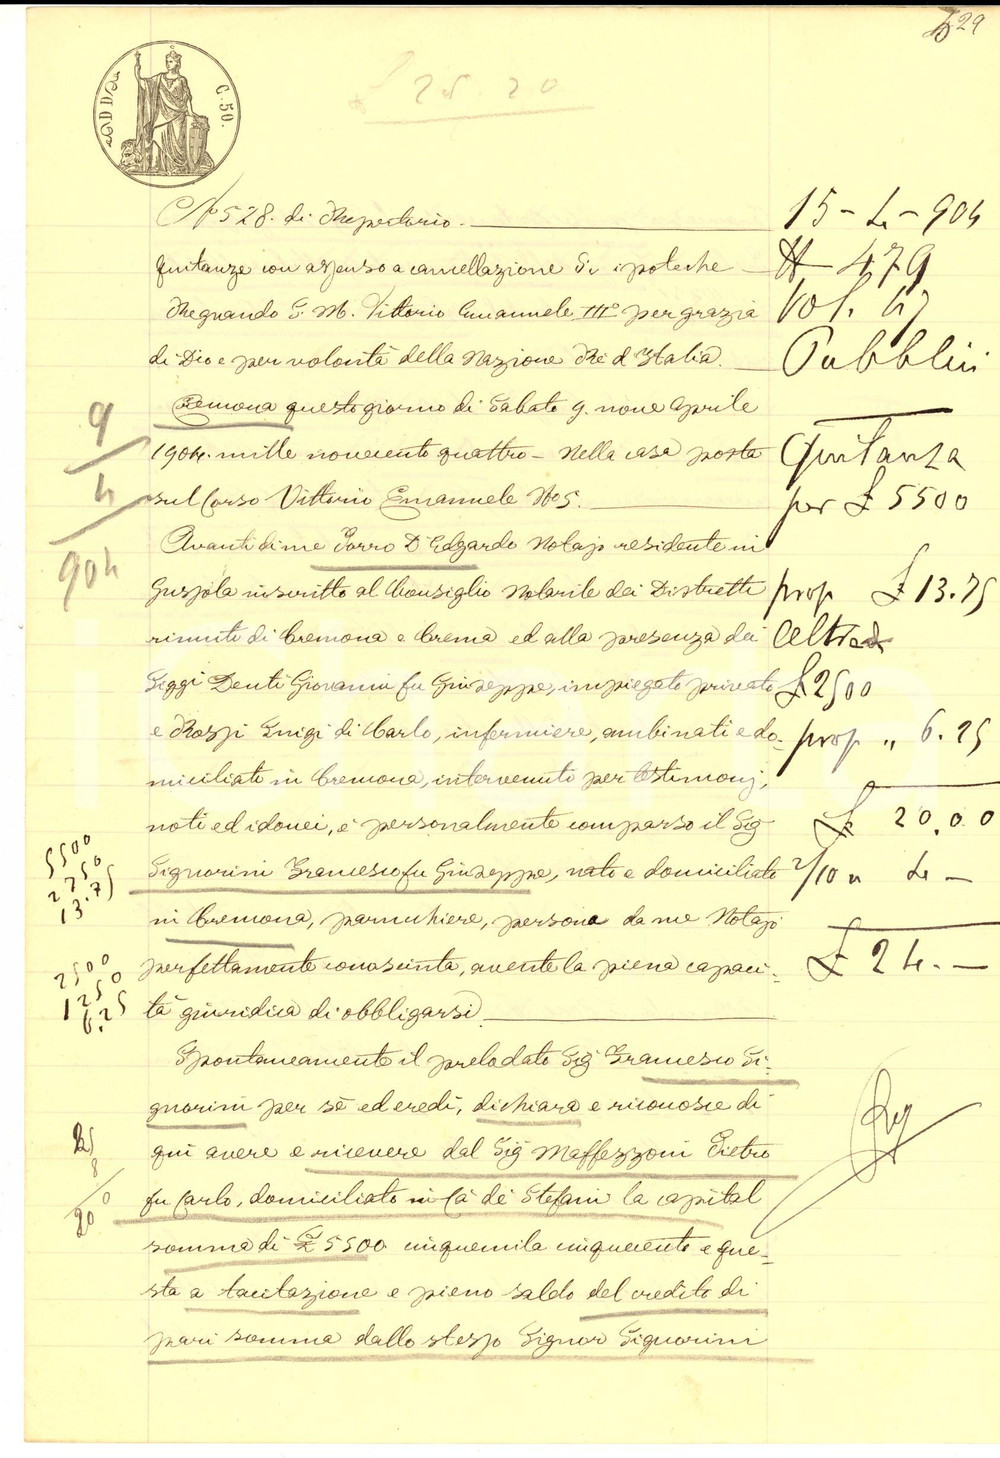 29
£ 25.20
C. 50.
No 528. di Repertorio.
Quitanze con assenso a cancellazione di ipoteche
Regnando S. M. Vittorio Emanuele III° per grazia
di Dio e per volontà della Nazione Re d'Italia.
Cremona questo giorno di Sabato 9. nove Aprile
1904. mille novecento quattro - Nella casa posta
sul Corso Vittorio Emanuele No 5.
Avanti di me Porro Dr Edgardo Notajo residente in
Gussola inscritto al Consiglio Notarile dei Distretti
riuniti di Cremona e Crema ed alla presenza dei
Siggi Denti Giovanni fu Giuseppe, impiegato privato
e Rossi Luigi di Carlo, infermiere, ambinati e do-
miciliati in Cremona, intervenuti per testimonj,
noti ed idonei, è personalmente comparso il Sig
Signorini Francesco fu Giuseppe, nato e domiciliato
in Cremona, parruchiere, persona da me Notajo
perfettamente conosciuta, avente la piena capaci-
tà giuridica di obbligarsi.
Spontaneamente il prelodato Sig Francesco Si-
gnorini per sè ed eredi, dichiara e riconosce di
qui avere e ricevere dal Sig Maffezzoni Pietro
fu Carlo, domiciliato in Cà de' Stefani la capital
somma di £ 5500 cinquemila cinquecento e que-
sta a tacitazione e pieno saldo del credito di
pari somma dallo stesso Signor Signorini
15 - 4 - 904
N 479
Vol. 47
Pubblici
Quitanza
per £ 5500
prop £ 13.75
Altra
£ 2500
prop „ 6.25
£ 20.00
2/10 „ 4 -
£ 24. -
9
4
904
5500
2750
13.75
2500
1250
6.25